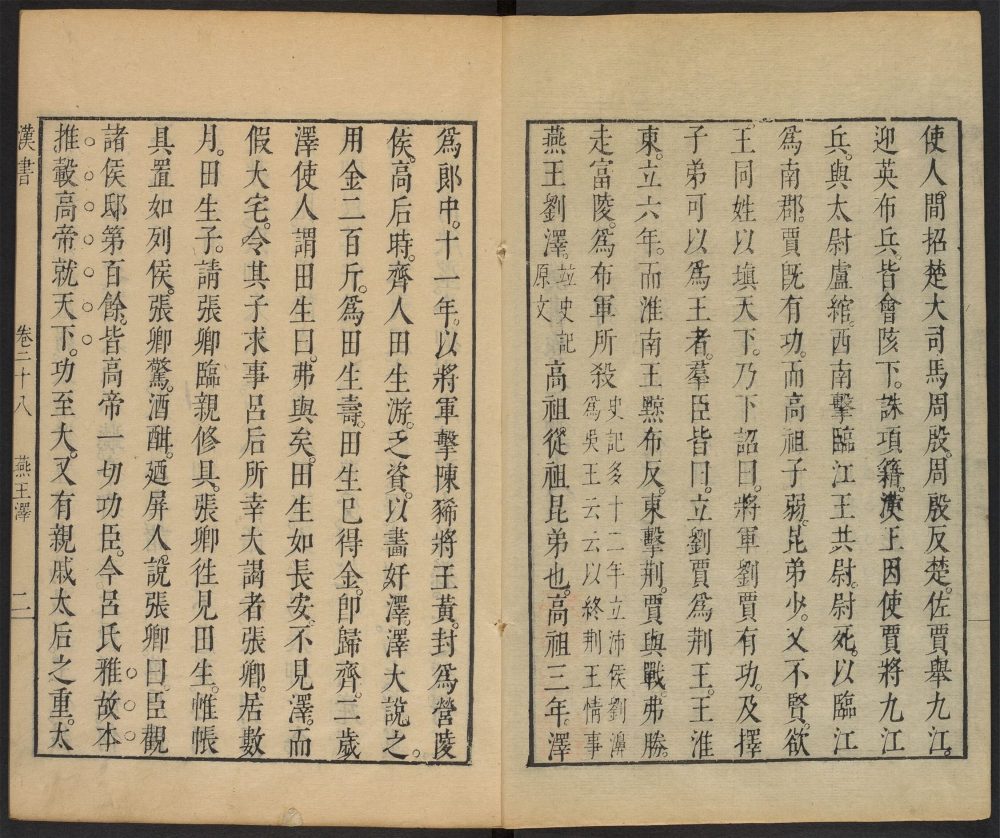 使人。間招楚大司馬周殷。周殷反楚。佐賈舉九江。
迎英布兵。皆會陔下。誅項籍。漢王因使賈將九江
兵。與太尉盧綰。西南擊臨江王共尉。尉死。以臨江
爲南郡。賈旣有功。而高祖子弱。昆弟少。又不賢。欲
王同姓以塡天下。乃下詔曰。將軍劉賈有功。及擇
子弟可以爲王者。羣臣皆曰。立劉賈爲荆王。王淮
東。立六年。而淮南王黥布反。東擊荆。賈與戰。弗勝。
走富陵。爲布軍所殺史記多十二年立沛侯劉濞
爲吳王云云以終荆王情事
燕王劉澤。並史記
原文高祖。從祖昆弟也。高祖三年。澤
爲郎中。十一年。以將軍擊陳豨將王黃。封爲營陵
侯。高后時。齊人田生游。乏資。以畵奸澤。澤大說之。
用金二百斤。爲田生壽。田生已得金。卽歸齊。二歲
澤使人謂田生曰。弗與矣。田生如長安。不見澤。而
假大宅。令其子求事呂后所幸大謁者張卿。居數
月。田生子。請張卿臨親修具。張卿徃見田生。帷帳
具置如列侯。張卿驚。酒酣。廼屏人。說張卿曰。臣觀
諸侯邸第百餘。皆高帝一切功臣。今呂氏雅故本
推轂高帝就天下。功至大。又有親戚太后之重。太
漢書 卷二十八 燕王澤 二